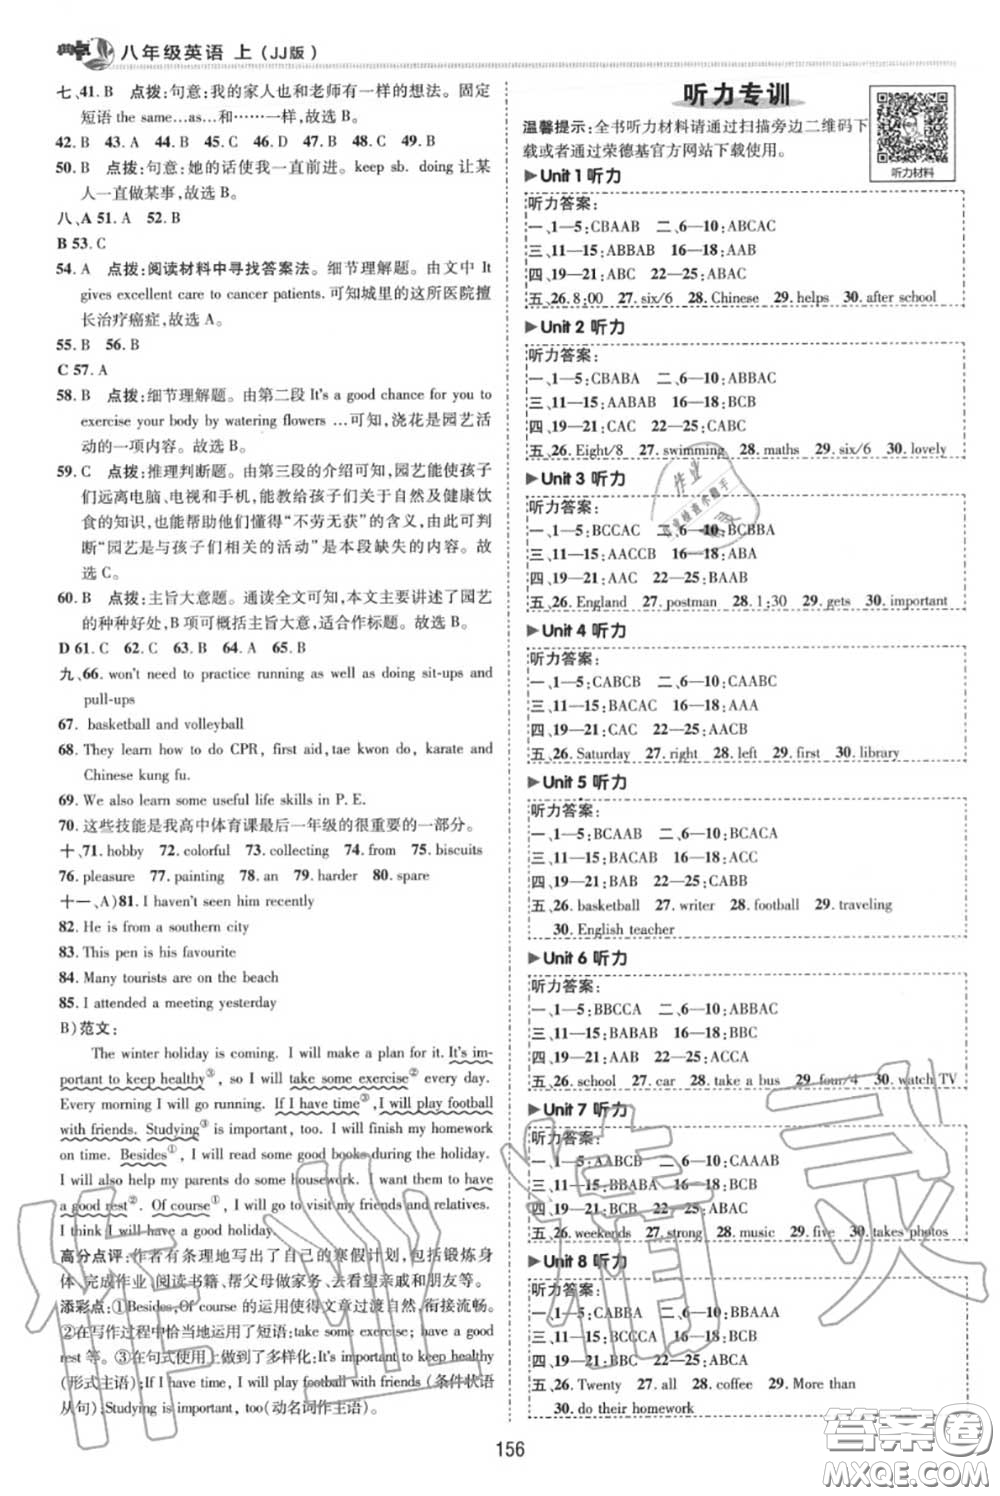 典中点 八年级英语 上(JJ版)
七、41. B 点拨:句意:我的家人也和老师有一样的想法。固定
短语 the same…as…和………一样,故选 B。
42. B 43. B 44. D 45. B 46. C 47. D 48. C 49. B
50. B 点拨:句意:她的话使我一直前进。keep sb. doing 让某
人一直做某事,故选 B。
八、A 51. A 52. B
B 53. C
54. A 点拨:阅读材料中寻找答案法。细节理解题。由文中 It
gives excellent care to cancer patients. 可知城里的这所医院擅
长治疗癌症,故选 A。
55. B 56. B
C 57. A
58. B 点拨:细节理解题。由第二段 It's a good chance for you to
exercise your body by watering flowers …可知,浇花是园艺活
动的一项内容。故选 B。
59. C 点拨:推理判断题。由第三段的介绍可知,园艺能使孩子
们远离电脑、电视和手机,能教给孩子们关于自然及健康饮
食的知识,也能帮助他们懂得“不劳无获”的含义,由此可判
断“园艺是与孩子们相关的活动”是本段缺失的内容。故
选 C。
60. B 点拨:主旨大意题。通读全文可知,本文主要讲述了园艺
的种种好处,B 项可概括主旨大意,适合作标题。故选 B。
D 61. C 62. C 63. B 64. A 65. B
九、66. won't need to practice running as well as doing sit-ups and
pull-ups
67. basketball and volleyball
68. They learn how to do CPR, first aid, tae kwon do, karate and
Chinese kung fu.
69. We also learn some useful life skills in P. E.
70. 这些技能是我高中体育课最后一年级的很重要的一部分。
十、71. hobby 72. colorful 73. collecting 74. from 75. biscuits
76. pleasure 77. painting 78. an 79. harder 80. spare
十一、A)81. I haven't seen him recently
82. He is from a southern city
83. This pen is his favourite
84. Many tourists are on the beach
85. I attended a meeting yesterday
B)范文:
The winter holiday is coming. I will make a plan for it. It's im-
portant to keep healthy③, so I will take some exercise② every day.
Every morning I will go running. If I have time③, I will play football
with friends. Studying③ is important, too. I will finish my homework
on time. Besides①, I will read some good books during the holiday.
I will also help my parents do some housework. I want them to have
a good rest②. Of course①, I will go to visit my friends and relatives.
I think I will have a good holiday.
高分点评:作者有条理地写出了自己的寒假计划,包括锻炼身
体、完成作业、阅读书籍、帮父母做家务、去看望亲戚和朋友等。
添彩点:①Besides,Of course 的运用使得文章过渡自然,衔接流畅。
②在写作过程中恰当地运用了短语:take some exercise; have a good
rest 等。③在句式使用上做到了多样化:It's important to keep healthy
(形式主语);If I have time, I will play football with friends (条件状语
从句);Studying is important, too(动名词作主语)。
听力专训
温馨提示:全书听力材料请通过扫描旁边二维码下
载或者通过荣德基官方网站下载使用。
听力材料
Unit 1 听力
听力答案:
一、1—5:CBAAB 二、6—10:ABCAC
三、11—15:ABBAB 16—18:AAB
四、19—21:ABC 22—25:BCAB
五、26. 8:00 27. six/6 28. Chinese 29. helps 30. after school
Unit 2 听力
听力答案:
一、1—5:CBABA 二、6—10:ABBAC
三、11—15:AABAB 16—18:BCB
四、19—21:CAC 22—25:CABC
五、26. Eight/8 27. swimming 28. maths 29. six/6 30. lovely
Unit 3 听力
听力答案:
一、1—5:BCCAC 二、6—10:BCBBA
三、11—15:AACCB 16—18:ABA
四、19—21:AAC 22—25:BAAB
五、26. England 27. postman 28. 1:30 29. gets 30. important
Unit 4 听力
听力答案:
一、1—5:CABCB 二、6—10:CAABC
三、11—15:BACAC 16—18:AAA
四、19—21:CAC 22—25:AACB
五、26. Saturday 27. right 28. left 29. first 30. library
Unit 5 听力
听力答案:
一、1—5:BCAAB 二、6—10:BCACA
三、11—15:BACAB 16—18:ACC
四、19—21:BAB 22—25:CABB
五、26. basketball 27. writer 28. football 29. traveling
30. English teacher
Unit 6 听力
听力答案:
一、1—5:BBCCA 二、6—10:ABBAC
三、11—15:BABAB 16—18:BBC
四、19—21:BAC 22—25:ACCA
五、26. school 27. car 28. take a bus 29. four/4 30. watch TV
Unit 7 听力
听力答案:
一、1—5:AABCB 二、6—10:CAAAB
三、11—15:BCABC 16—18:BAC
四、19—21:BCB 22—25:CACA
五、26. weekends 27. strong 28. music 29. five 30. takes photos
Unit 8 听力
听力答案:
一、1—5:CABBA 二、6—10:BBAAA
三、11—15:BCCCA 16—18:BCB
四、19—21:BCB 22—25:ABCA
五、26. Twenty 27. all 28. coffee 29. More than
30. do their homework
156
作业精灵
答案卷
MXQE.COM